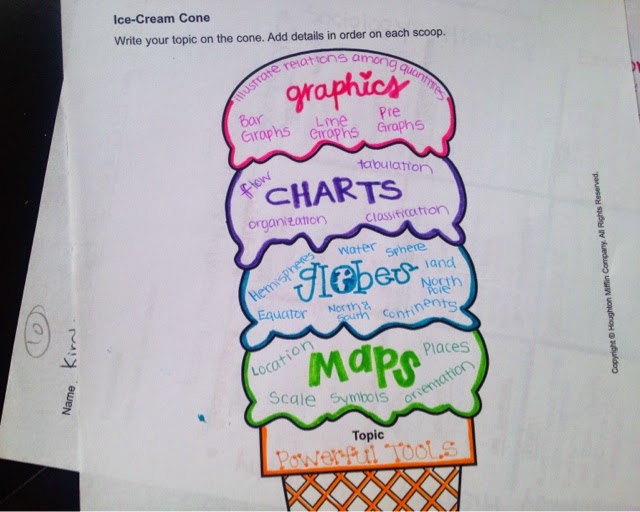 Ice-Cream Cone
Write your topic on the cone. Add details in order on each scoop.
illustrate relations among quantities
graphics
Bar Graphs
Line Graphs
Pie Graphs
flow
tabulation
CHARTS
organization
classification
Hemispheres
water
sphere
land
globes
North Pole
Equator
North & South
continents
Location
Maps
Places
Scale
Symbols
orientation
Topic
Powerful Tools
Name
10
Copyright © Houghton Mifflin Company. All Rights Reserved.